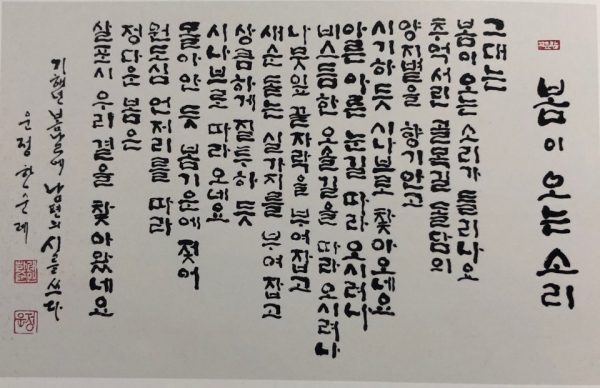 봄이 오는 소리
그대는
봄이 오는 소리가 들리나요
추억 서린 골목길 돌담의
양지볕을 향기 안고
시기하듯 시나브로 찾아오네요
아름 아름 눈길 따라 오시려나
비스듬한 오솔길을 따라 오시려나
나뭇잎 끝자락을 부여잡고
새순 돋는 실가지를 부여잡고
상큼하게 질투하듯
시나브로 따라 오네요
돌아앉듯 봄기운에 젖어
원도심 언저리를 따라
정다운 봄은
살포시 우리 곁을 찾아왔네요
기해년 봄날에 남편의 시를 쓰다
운정 한순례
운정